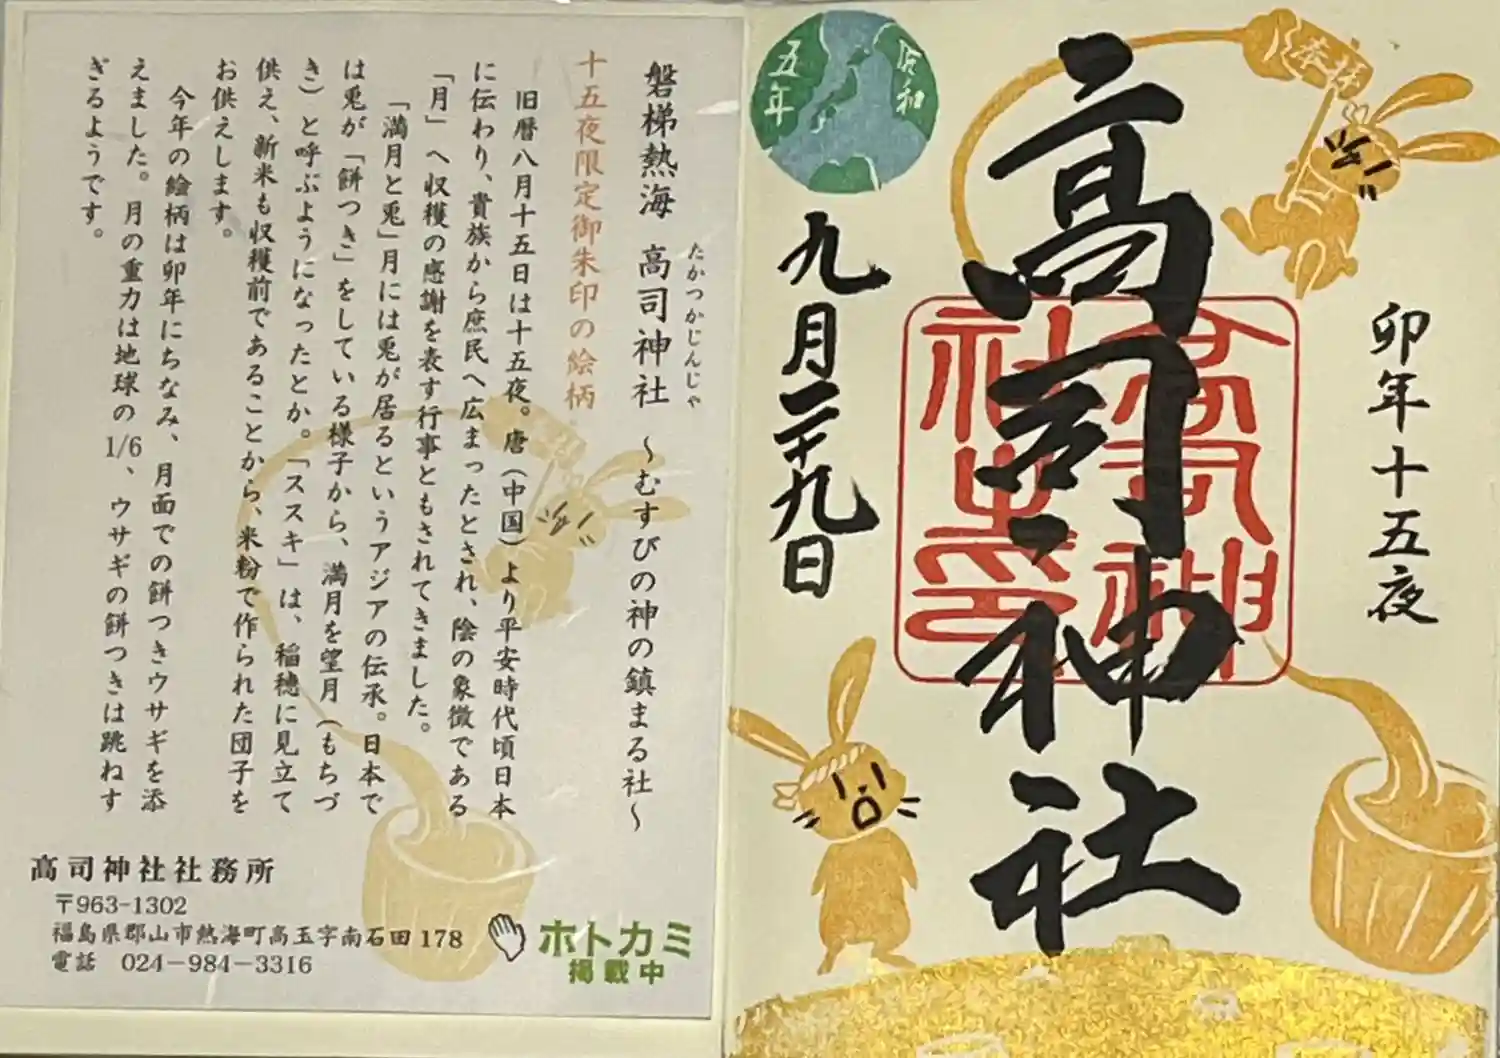 磐梯熱海 高司神社 ～むすびの神の鎮まる社～
たかつかじんじゃ
十五夜限定御朱印の絵柄
旧暦八月十五日は十五夜。唐（中国）より平安時代頃日本
に伝わり、貴族から庶民へ広まったとされ、陰の象徴である
「月」へ収穫の感謝を表す行事ともされてきました。
「満月と兎」月には兎が居るというアジアの伝承。日本で
は兎が「餅つき」をしている様子から、満月を望月（もちづ
き）と呼ぶようになったとか。「ススキ」は、稲穂に見立て
供え、新米も収穫前であることから、米粉で作られた団子を
お供えします。
今年の絵柄は卯年にちなみ、月面での餅つきウサギを添
えました。月の重力は地球の1/6、ウサギの餅つきは跳ねす
ぎるようです。
高司神社社務所
〒963-1302
福島県郡山市熱海町高玉字南石田178
電話 024－984－3316
ホトカミ
掲載中
卯年十五夜
奉拝
高司神社
高司神
社之印
令和
五年
九月二十九日